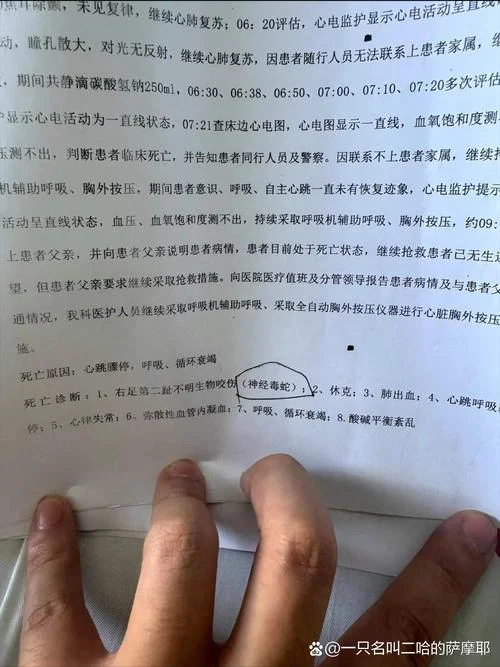 切耳除颤，未见复律，继续心肺复苏；06：20评估，心电监护显示心电活动呈一直
动，瞳孔散大，对光无反射，继续心肺复苏，因患者随行人员无法联系上患者家属，继续
，期间共静滴碳酸氢钠250ml，06:30、06:38、06:50、07:00、07:10、07:20多次评估
显示心电活动为一直线状态，07:21查床边心电图，心电图显示一直线，血氧饱和度测
压测不出，判断患者临床死亡，并告知患者同行人员及警察。因联系不上患者家属，继续
机辅助呼吸、胸外按压，期间患者意识、呼吸、自主心跳一直未有恢复迹象，心电监护提示
活动呈直线状态，血压、血氧饱和度测不出，持续采取呼吸机辅助呼吸、胸外按压，约09
上患者父亲，并向患者父亲说明患者病情，患者目前处于死亡状态，继续抢救患者已无生
望，但患者父亲要求继续采取抢救措施。向医院医疗值班及分管领导报告患者病情及与患者父
通情况，我科医护人员继续采取呼吸机辅助呼吸、采取全自动胸外按压仪器进行心脏胸外按压
施。
死亡原因：心跳骤停，呼吸、循环衰竭
死亡诊断：1、右足第二趾不明生物咬伤（神经毒蛇）；2、休克；3、肺出血；4、心跳呼吸
停；5、心律失常；6、弥散性血管内凝血；7、呼吸、循环衰竭；8.酸碱平衡紊乱
@一只名叫二哈的萨摩耶